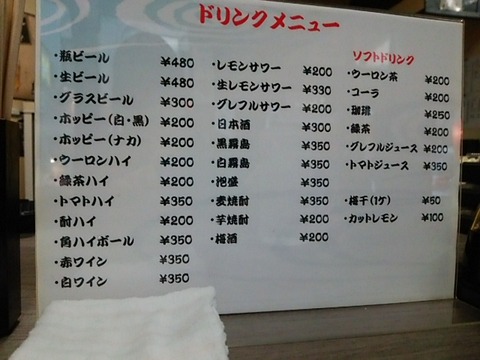 ドリンクメニュー
・瓶ビール ¥480
・生ビール ¥480
・グラスビール ¥300
・ホッピー(白・黒) ¥200
・ホッピー(ナカ) ¥200
・ウーロンハイ ¥200
・緑茶ハイ ¥200
・トマトハイ ¥350
・酎ハイ ¥200
・角ハイボール ¥350
・赤ワイン ¥350
・白ワイン ¥350
・レモンサワー ¥200
・生レモンサワー ¥330
・グレフルサワー ¥200
・日本酒 ¥300
・黒霧島 ¥350
・白霧島 ¥350
・泡盛 ¥350
・麦焼酎 ¥350
・芋焼酎 ¥350
・梅酒 ¥200
ソフトドリンク
・ウーロン茶 ¥200
・コーラ ¥200
・珈琲 ¥250
・緑茶 ¥200
・グレフルジュース ¥200
・トマトジュース ¥350
・梅干(1ケ) ¥50
・カットレモン ¥100